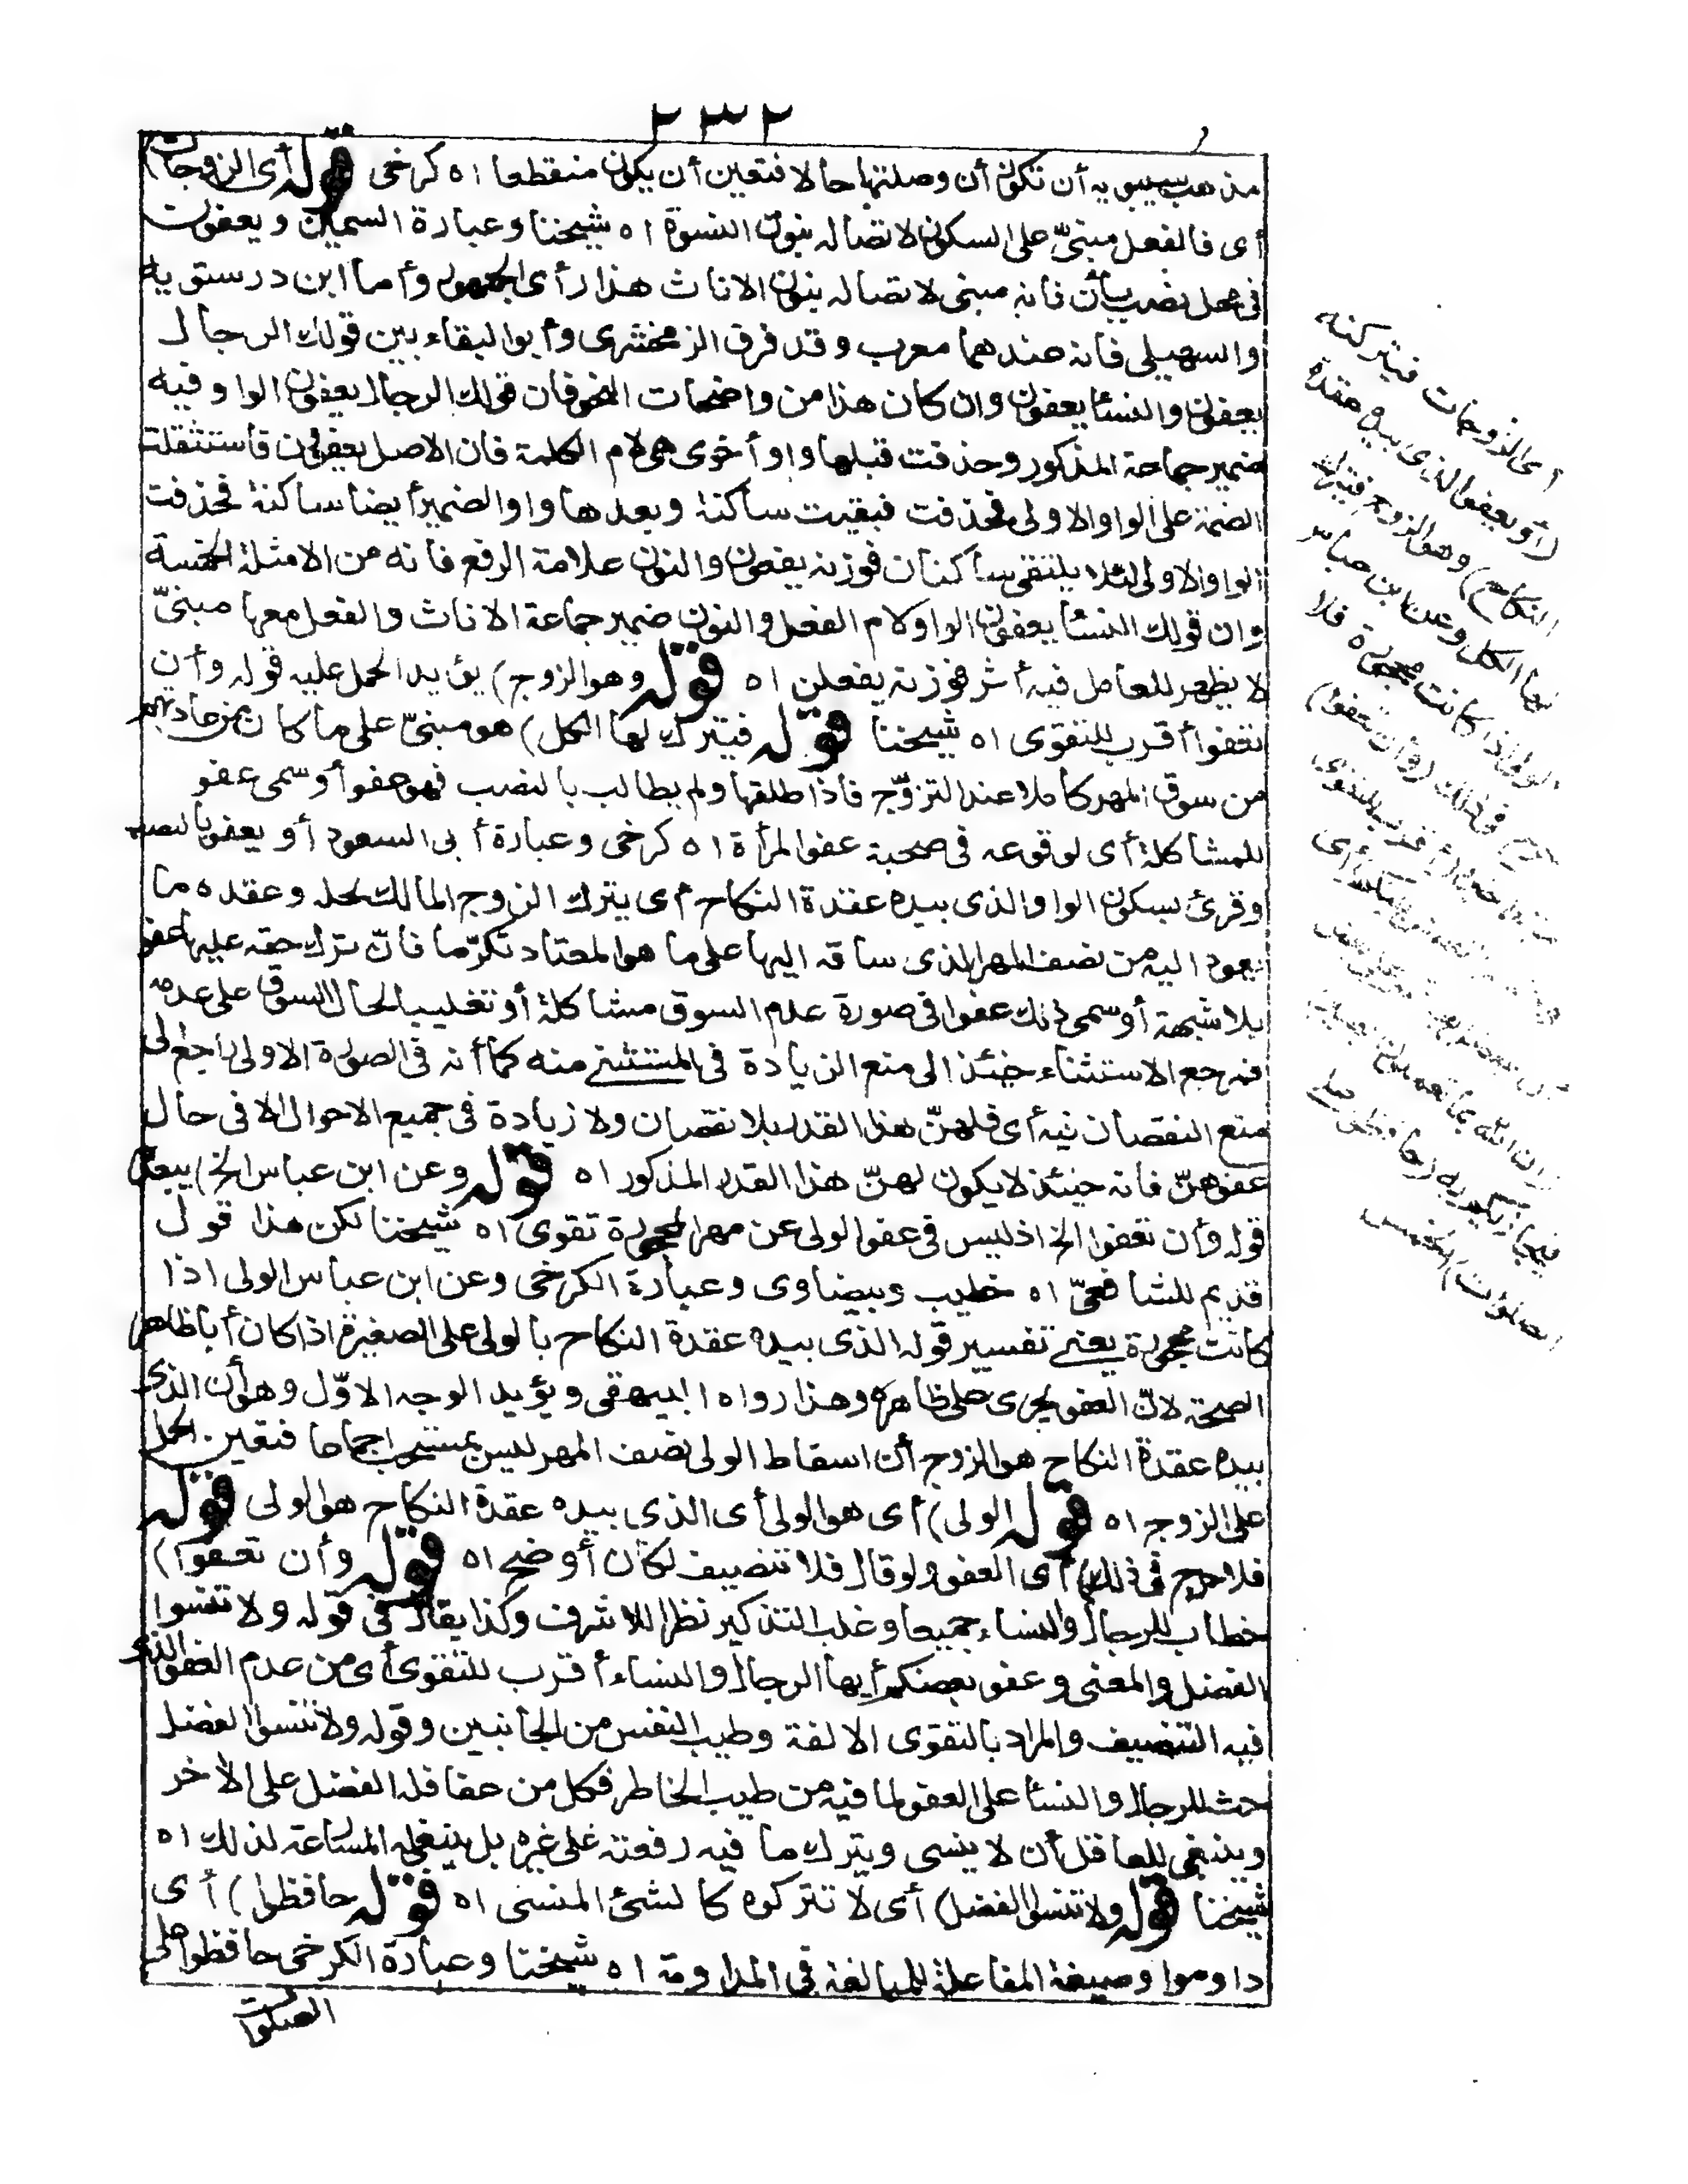 ٢٣٢
مذهب سيبويه أن تكون أن وصلتها حالا فتعين أن يكون منقطعا اه كرخى قوله أى الزوجات)
أى فالفعل مبنىّ على السكون لاتصاله بنون النسوة اه شيخنا وعبارة السمين ويعفون
فى محل نصب بأن فانه مبنى لاتصاله بنون الاناث هذا رأى الجمهور وأما ابن درستويه
والسهيلى فانه عندهما معرب وقد فرق الزمخشرى وأبوالبقاء بين قولك الرجال
يعفون والنسأ يعفون وان كان هذا من واضحات النحو فان قولك الرجال يعفون الواو فيه
ضمير جماعة المذكور وحذفت قبلها واو أخرى هى لام الكلمة فان الاصل يعفوون فأستثقلت
الضمة على الواو الاولى فحذفت فبقيت ساكنة وبعدها واو الضمير أيضا ساكنة فحذفت
الواو الاولى لئلا يلتقى ساكنان فوزنه يفعون والنون علامة الرفع فانه من الامثلة الخمسة
وان قولك النسأ يعفون الواو لام الفعل والنون ضمير جماعة الاناث والفعل معها مبنىّ
لا يظهر للعامل فيه أثر فوزنه يفعلن اه قوله وهو الزوج) يؤيد الحمل عليه قوله وأن
تعفوا أقرب للتقوى اه شيخنا قوله فيترك لها الكل) هو مبنىّ على ما كان من عادتهم
من سوق المهر كاملا عند التزوّج فاذا طلقها ولم يطالب بالنصب فهو عفو أو سمى عفو
للمشاكلة أى لوقوعه فى صحبة عفو المرأة اه كرخى وعبارة أبى السعود أو يعفو بالنصب
وقرئ بسكون الواو الذى بيده عقدة النكاح أى يترك الزوج المالك لحله وعقده ما
يعود اليه من نصف المهر الذى ساقه اليها على ما هو المعتاد تكرّما فانّ ترك حقه عليها عفو
بلا شبهة أو سمى ذلك عفوا فى صورة عدم السوق مشاكلة أو تغليبا لحال السوق على عدمه
فمرجع الاستثناء حينئذ الى منع الزيادة فى المستثنى منه كما أنه فى الصورة الاولى راجع الى
منع النقصان فيه أى فلهنّ هذا القدر بلا نقصان ولا زيادة فى جميع الاحوال الا فى حال
عفوهنّ فانه حينئذ لا يكون لهنّ هذا القدر المذكور اه قوله وعن ابن عباس الخ) يبعده
قوله وأن تعفوا الخ اذ ليس فى عفو الولى عن مهر المحجورة تقوى اه شيخنا لكن هذا قول
قديم للشافعىّ اه خطيب وبيضاوى وعبارة الكرخى وعن ابن عباس الولى اذا
كانت محجورة يعنى تفسير قوله الذى بيده عقدة النكاح بالولى على الصغيرة اذا كان أبا ظاهر
الصحة لانّ العفو يجرى على ظاهره وهذا رواه البيهقى ويؤيد الوجه الاوّل وهو أن الذى
بيده عقدة النكاح هو الزوج أن اسقاط الولى نصف المهر ليس بمستحب اجماعا فتعين الحمل
على الزوج اه قوله الولى) أى هو الولى أى الذى بيده عقدة النكاح هو الولى قوله
فلا حرج فى ذلك) أى العفو ولو قال فلا تنصيف لكان أوضح اه قوله وأن تعفوا)
خطاب للرجال والنساء جميعا وغلب التذكير نظرا للاشرف وكذا يقال فى قوله ولا تنسوا
الفضل والمعنى وعفو بعضكم أيها الرجال والنساء أقرب للتقوى أى من عدم العفو الذى
فيه التنصيف والمراد بالتقوى الالفة وطيب النفس من الجانبين وقوله ولا تنسوا الفضل
حث للرجال والنسأ على العفو لما فيه من طيب الخاطر فكل من عفا فله الفضل على الأخر
وينبغى للعاقل أن لا ينسى ويترك ما فيه رفعته على غيره بل ينبغى له المسارعة لذلك اه
شيخنا قوله ولا تنسوا الفضل) أى لا تتركوه كالشئ المنسى اه قوله حافظوا) أى
داوموا وصيغة المفاعلة للمبالغة فى المداومة اه شيخنا وعبارة الكرخى حافظوا على
الصلوات
أى الزوجات فيتركنه
(أو يعفو الذى بيده عقدة
النكاح) وهو الزوج فيترك
لها الكل وعن ابن عباس
الولى اذا كانت محجورة فلا
حرج فى ذلك (وأن تعفوا)
أقرب للتقوى
ان الله بما تعملون بصير
فيجازيكم به (حافظوا على
الصلوات) الخمس